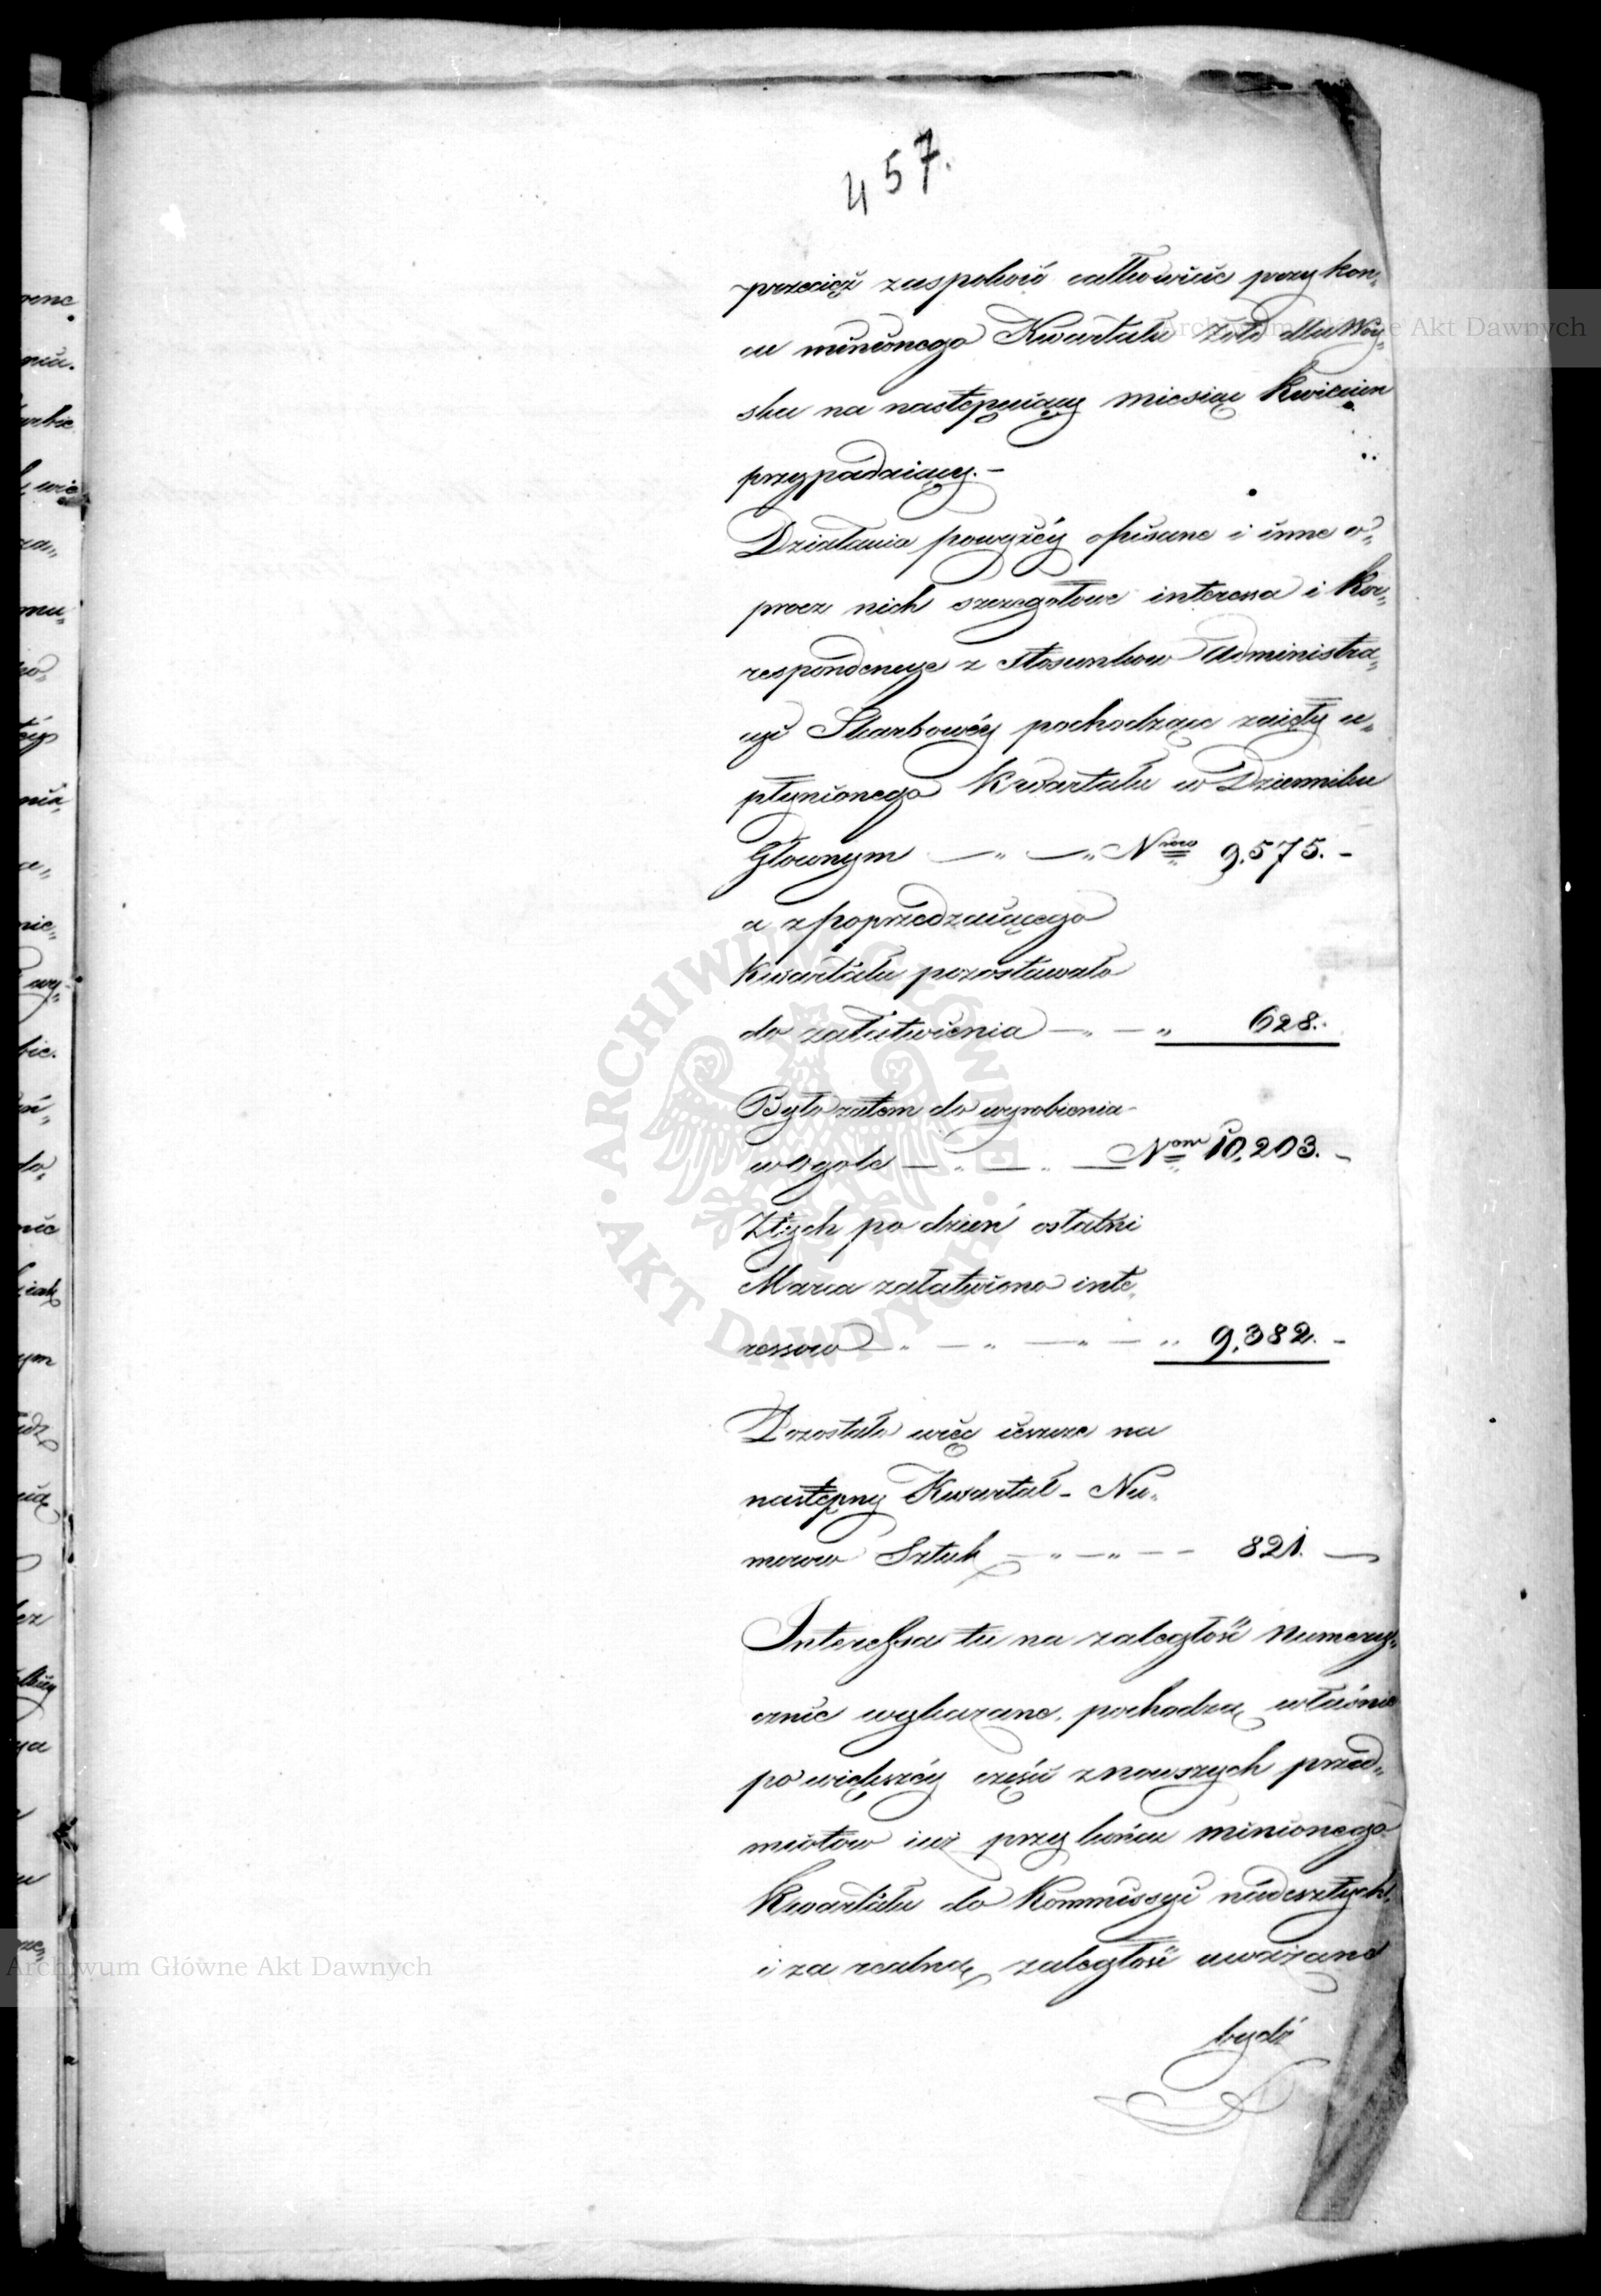 457.
przecież zaspokoić całkowicie przy koń„
cu minionego Kwartału żołd dla Woy„
ska na następuiący miesiąc Kwiecień
przypadaiący. –
Działania powyżéy opisane i inne o„
procz nich szczegołowe interesa i kor„
respondencye z stosunkow Administra„
cyi Skarbowéy pochodzące zaięły u„
płynionego Kwartału w Dzienniku
Głownym — „ — „ Nrow 9,575. –
a z poprzedzaiącego
Kwartału pozostawało
do załatwienia — „ — „ 628.
Było zatem do wyrobienia
w ogole — „ — „ — Nrow 10,203. –
Z tych po dzień ostatni
Marca załatwiono inte„
ressow — „ — „ — „ — „ 9,382. –
Pozostało więc ieszcze na
następny Kwartał – Nu„
merow Sztuk — „ — „ — – 821. —
Interessa tu na zaległość numery„
cznie wykazane, pochodzą właśnie
po większéy części z nowszych przed„
miotow iuż przy końcu minionego
Kwartału do Kommissyi nadeszłych,
i za realną zaległość uważane
bydź
Archiwum Główne Akt Dawnych
Archiwum Główne Akt Dawnych
ARCHIWUM GŁÓWNE · AKT DAWNYCH ·